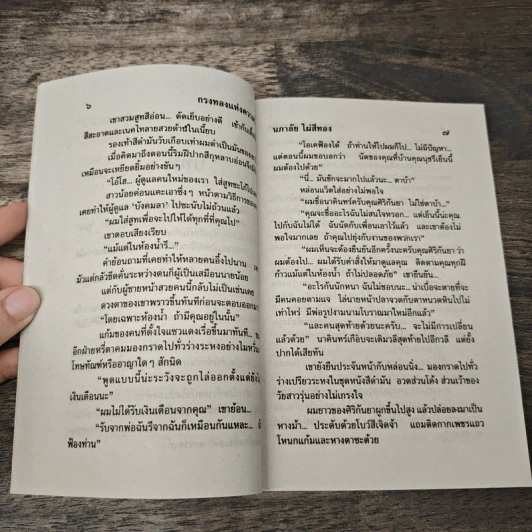 ๖
กรงทองแห่งความ
เขาสวมสูทสีอ่อน... ตัดเย็บอย่างดี เข้ากับเสื้อ
สีสะอาดและเนคไทลายสวยด้านในเนี้ยบ
รองเท้าสีดำมันวับเกือบเท่าผมดำเป็นมันของ
เมื่อคิดมาถึงตอนนี้ริมฝีปากสีกุหลาบอ่อนจึง
เหมือนจะเหยียดยิ้มอย่างขัน ๆ
“โอ้โฮ... ผู้ดูแลคนใหม่ของเรา ใส่สูทซะโก้
สาวน้อยค่อนแคะเอาซึ่งๆ หน้าด้วยวิธีการ
เคยทำให้ผู้ดูแล ‘บังคมลา’ ไปซะนับไม่ถ้วนแล้ว
“ผมใส่สูทเพื่อจะไปให้ได้ทุกที่ที่คุณไป”
เขาตอบเสียงเรียบ
“แม้แต่ในห้องน้ำรึ...”
คำย้อนถามที่เคยทำให้หลายคนอึ้งไปนาน
มัวแต่กลัวขีดคั่นระหว่างตนก็ผู้เป็นเสมือนนายน้อย
แต่กับผู้ชายหน้าสวยคนนี้กลับไม่เป็นเช่นเคย
ดวงตาของเขาพราวขึ้นทันทีก่อนจะตอบออกมา
“โดยเฉพาะห้องน้ำ ถ้ามีคุณอยู่ในนั้น”
แก้มของคนที่ตั้งใจแซวแดงเรื่อขึ้นมาทันที...
อีกฝ่ายหรี่ตาคมมองกราดไปทั่วร่างระหงอย่างไม่
โทษทัณฑ์หรืออาญาใด ๆ สักนิด
“พูดแบบนี้น่ะระวังจะถูกไล่ออกตั้งแต่ยัง
เงินเดือนนะ”
“ผมไม่ได้รับเงินเดือนจากคุณ” เขาย้อน...
“รับจากพ่อฉันรึจากฉันก็เหมือนกันแหละ...
ฟ้องท่าน”
นภาลัย ไผ่สีทอง
๗
“โอเคฟ้องได้ ถ้าท่านให้ไปผมก็ไป... ไม่มีปัญหา...
แต่ตอนนี้ผมขอบอกว่า นัดของคุณที่บ้านคุณนุชรีเย็นนี้
ผมต้องไปด้วย”
“นี่... มันชักจะมากไปแล้วนะ... ตาบ้า”
หล่อนแว๊ดใส่อย่างไม่พอใจ
“ผมชื่อนาคินทร์ครับคุณศิริกันยา ไม่ใช่ตาบ้า...”
“คุณจะชื่ออะไรฉันไม่สนใจหรอก... แต่เย็นนี้น่ะคุณ
ไปกับฉันไม่ได้ ฉันนัดกับเพื่อนเอาไว้แล้ว และเขาต้องไม่
พอใจมากเลย ถ้าคุณไปยุ่งกับงานของพวกเรา”
“ผมเห็นจะต้องยืนยันอีกครั้งนะครับคุณศิริกันยา ว่า
ผมต้องไป... ผมได้รับคำสั่งให้มาดูแลคุณ ติดตามคุณทุกฝี
ก้าวแม้แต่ในห้องน้ำ ถ้าไม่ปลอดภัย” เขายืนยัน...
“อะไรกันนักหนา ฉันไม่ชอบนะ... น่าเบื่อจะตายที่จะ
มีคนคอยตามแจ ไล่นายหน้าปลาจวดกับตาหนวดหินไปไม่
เท่าไหร่ มีพ่อรูปงามนามโบราณมาใหม่อีกแล้ว”
“และคนสุดท้ายด้วยนะครับ... จะไม่มีการเปลี่ยน
แล้วด้วย” นาคินทร์เกือบจะเติมวลีสุดท้ายไปอีกวลี แต่ยั้ง
ปากได้เสียทัน
เขายังยืนประจันหน้ากับหล่อนนิ่ง... มองกราดไปทั่ว
ร่างเปรียวระหงในชุดหนังสีดำมัน อวดส่วนโค้ง ส่วนเว้าของ
วัยสาวรุ่นอย่างไม่เกรงใจ
ผมยาวของศิริกันยาผูกขึ้นไปสูง แล้วปล่อยลงมาเป็น
หางม้า... ประดับด้วยโบว์สีเจิดจ้า แถมติดกากเพชรแถว
โหนกแก้มและหางตาซะด้วย